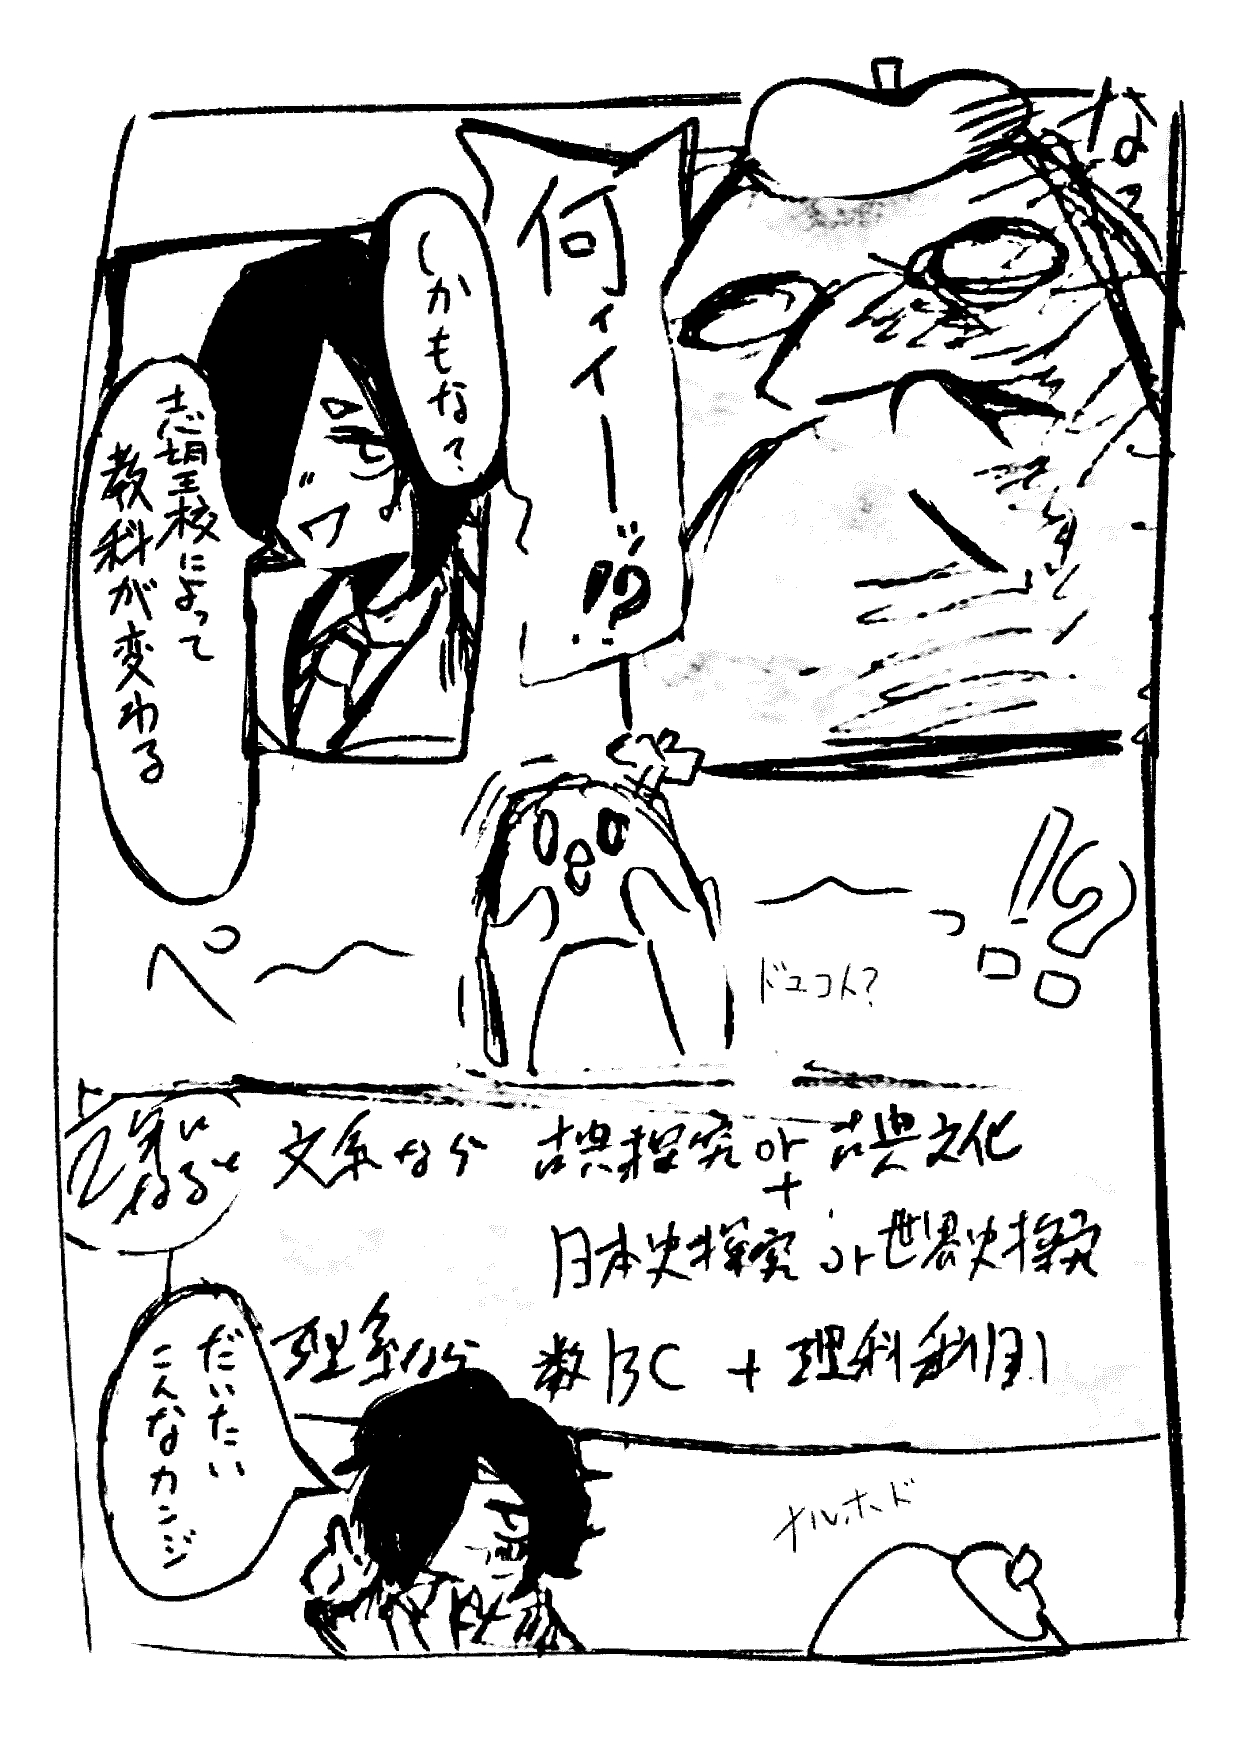 何ィイーーッ!?
しかもな？
志望校によって
教科が変わる
ぺ〜〜っ!?
ドユコト？
文系なら 古典探究or古典文化
+
日本史探究 or 世界史探究
理系なら 数BC + 理科科目1
だいたい
こんなカンジ
ナルホド